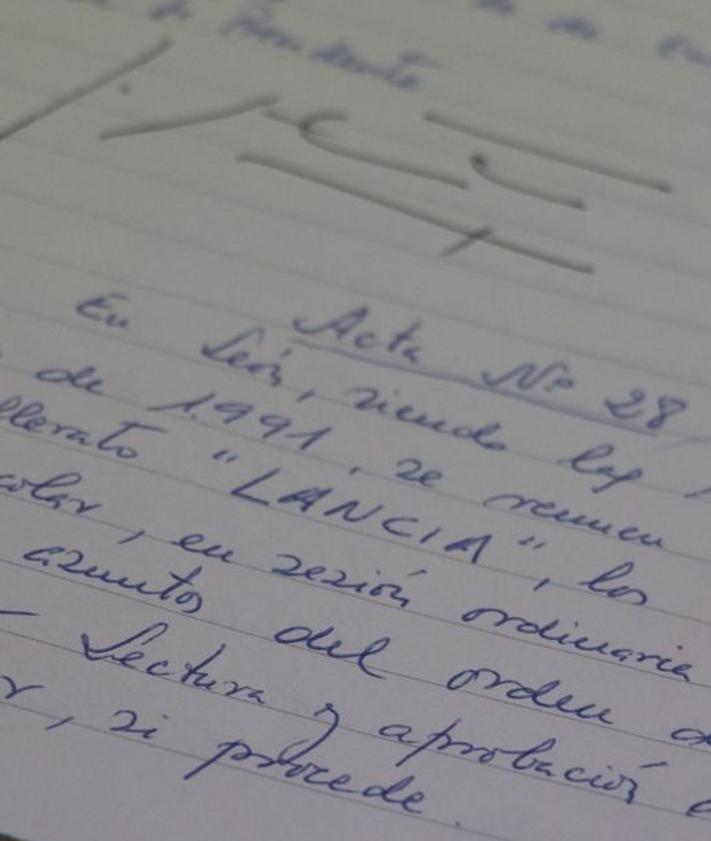 de
Acta Nº 28
En León, siendo las
de 1991, se reunen
llerato "LANCIA", los
colar, en sesión ordinaria
asuntos del orden d
- Lectura y aprobación d
r, si procede.